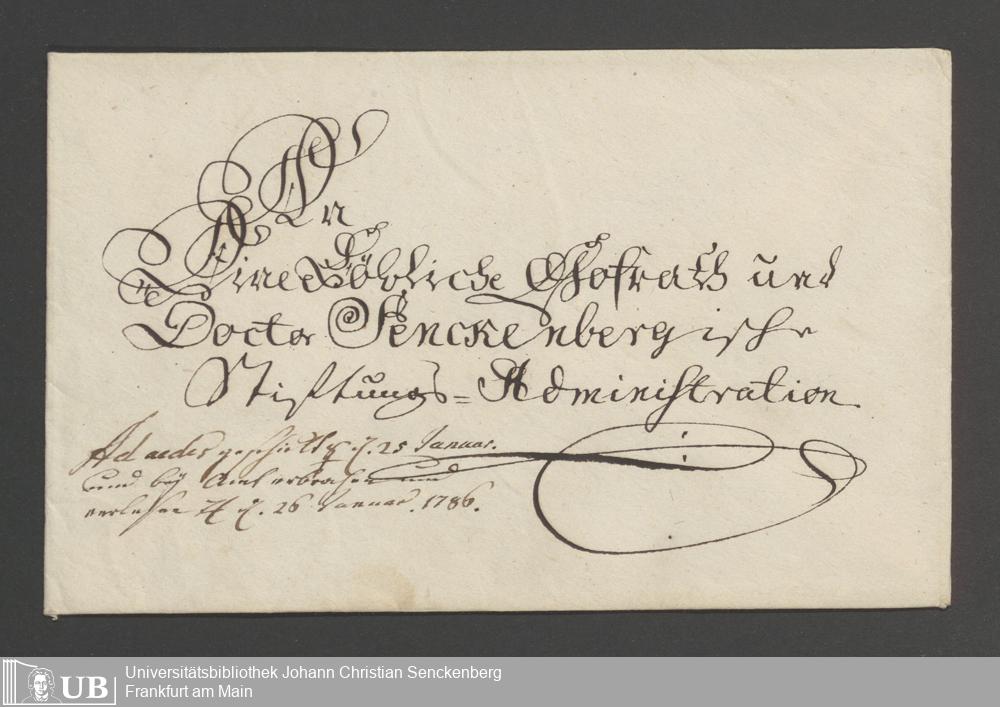 An
Eine Löbliche Hofrath und
Doctor Senckenbergische
Stiftungs=Administration
Ad aedes geschickt d. 25 Januar.
und bey Amt erbrochen und
verlesen d. 26 Januar. 1786.
Universitätsbibliothek Johann Christian Senckenberg
Frankfurt am Main
UB